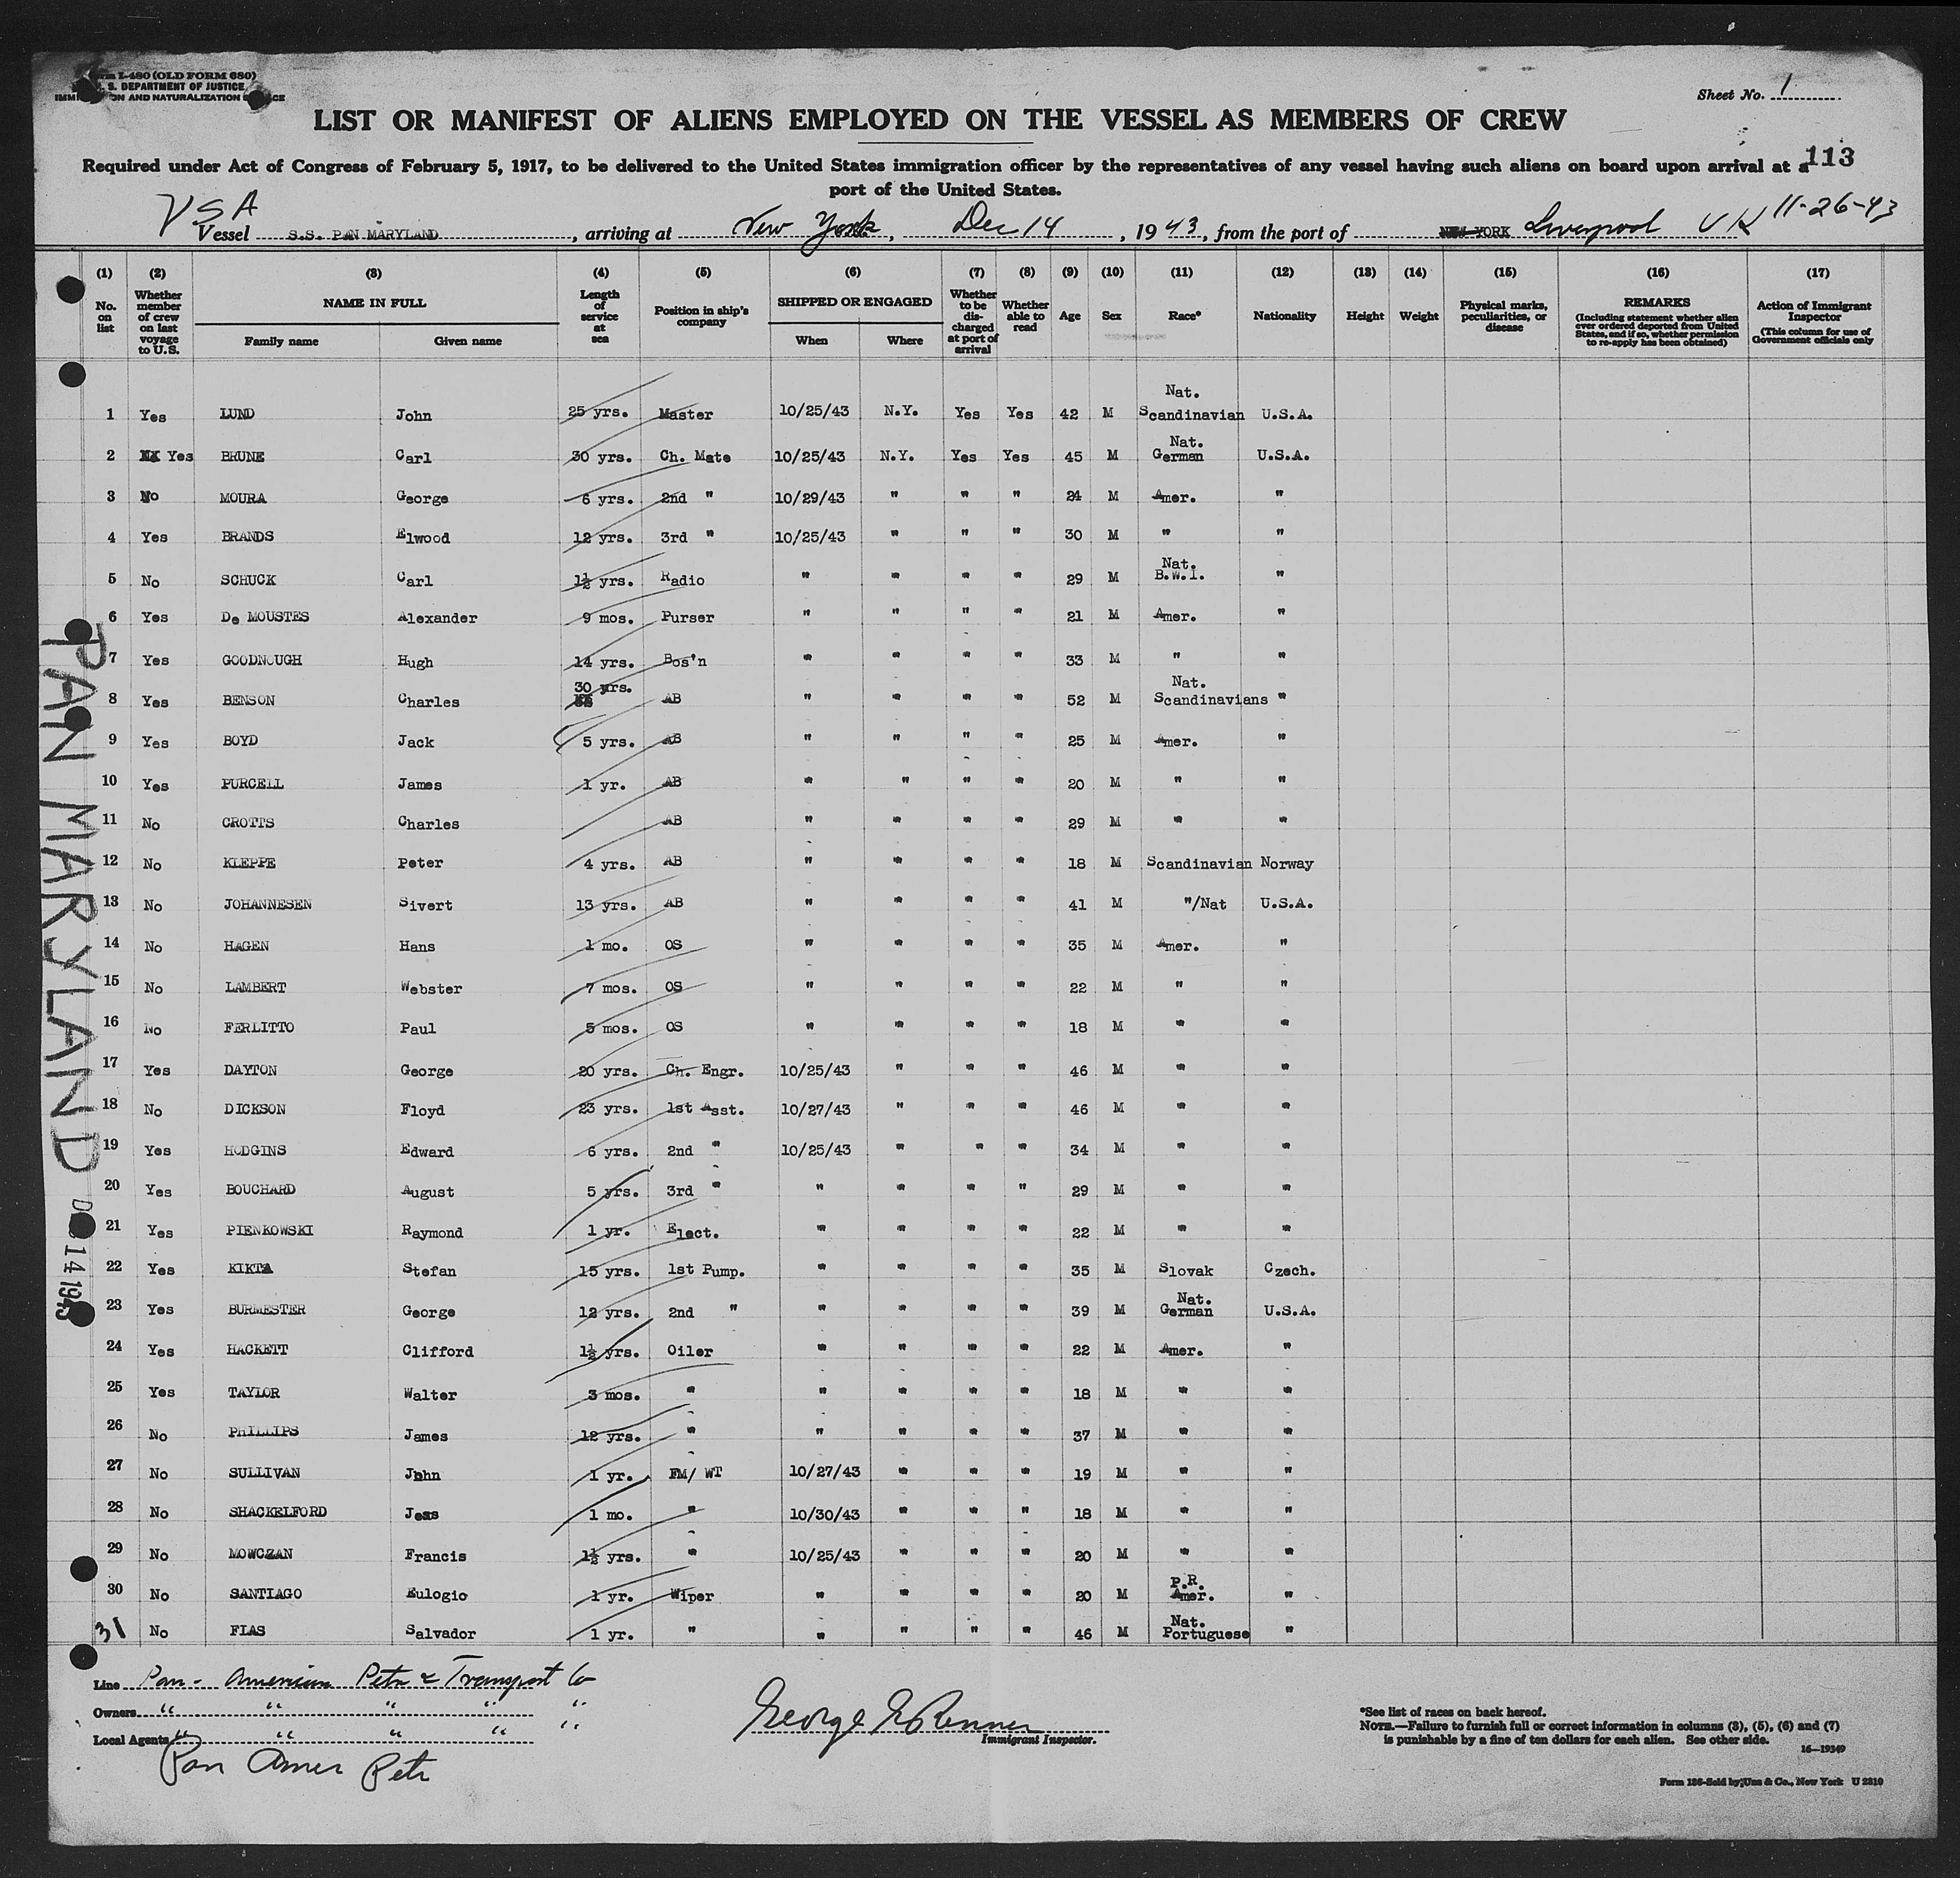 Form I-480 (OLD FORM 680)
U. S. DEPARTMENT OF JUSTICE
IMMIGRATION AND NATURALIZATION SERVICE
Sheet No. 1
LIST OR MANIFEST OF ALIENS EMPLOYED ON THE VESSEL AS MEMBERS OF CREW
Required under Act of Congress of February 5, 1917, to be delivered to the United States immigration officer by the representatives of any vessel having such aliens on board upon arrival at a
113
port of the United States.
Vessel S.S. PAN MARYLAND, arriving at New York, Dec 14, 1943, from the port of NEW YORK Liverpool UK 11-26-43
(1) (2) (3) (4) (5) (6) (7) (8) (9) (10) (11) (12) (13) (14) (15) (16) (17)
No. on list
Whether member of crew on last voyage to U.S.
NAME IN FULL
Family name Given name
Length of service at sea
Position in ship's company
SHIPPED OR ENGAGED
When Where
Whether to be discharged at port of arrival
Whether able to read
Age
Sex
Race*
Nationality
Height
Weight
Physical marks, peculiarities, or disease
REMARKS
(Including statement whether alien ever ordered deported from United States, and if so, whether permission to re-apply has been obtained)
Action of Immigrant Inspector
(This column for use of Government officials only
1 Yes LUND John 25 yrs. Master 10/25/43 N.Y. Yes Yes 42 M Nat. Scandinavian U.S.A.
2 Yes BRUNE Carl 30 yrs. Ch. Mate 10/25/43 N.Y. Yes Yes 45 M Nat. German U.S.A.
3 No MOURA George 6 yrs. 2nd " 10/29/43 " " " 24 M Amer. "
4 Yes BRANDS Elwood 12 yrs. 3rd " 10/25/43 " " " 30 M " "
5 No SCHUCK Carl 1½ yrs. Radio " " " " 29 M Nat. B.W.I. "
6 Yes De MOUSTES Alexander 9 mos. Purser " " " " 21 M Amer. "
7 Yes GOODNOUGH Hugh 14 yrs. Bos'n " " " " 33 M " "
8 Yes BENSON Charles 30 yrs. AB " " " " 52 M Nat. Scandinavians "
9 Yes BOYD Jack 5 yrs. AB " " " " 25 M Amer. "
10 Yes PURCELL James 1 yr. AB " " " " 20 M " "
11 No CROTTS Charles AB " " " " 29 M " "
12 No KLEPPE Peter 4 yrs. AB " " " " 18 M Scandinavian Norway
13 No JOHANNESEN Sivert 13 yrs. AB " " " " 41 M "/Nat U.S.A.
14 No HAGEN Hans 1 mo. OS " " " " 35 M Amer. "
15 No LAMBERT Webster 7 mos. OS " " " " 22 M " "
16 No FERLITTO Paul 5 mos. OS " " " " 18 M " "
17 Yes DAYTON George 20 yrs. Ch. Engr. 10/25/43 " " " 46 M " "
18 No DICKSON Floyd 23 yrs. 1st Asst. 10/27/43 " " " 46 M " "
19 Yes HODGINS Edward 6 yrs. 2nd " 10/25/43 " " " 34 M " "
20 Yes BOUCHARD August 5 yrs. 3rd " " " " " 29 M " "
21 Yes PIENKOWSKI Raymond 1 yr. Elect. " " " " 22 M " "
22 Yes KIKTA Stefan 15 yrs. 1st Pump. " " " " 35 M Slovak Czech.
23 Yes BURMESTER George 12 yrs. 2nd " " " " " 39 M Nat. German U.S.A.
24 Yes HACKETT Clifford 1½ yrs. Oiler " " " " 22 M Amer. "
25 Yes TAYLOR Walter 3 mos. " " " " " 18 M " "
26 No PHILLIPS James 12 yrs. " " " " " 37 M " "
27 No SULLIVAN John 1 yr. FM/ WT 10/27/43 " " " 19 M " "
28 No SHACKELFORD Jess 1 mo. " 10/30/43 " " " 18 M " "
29 No MOWCZAN Francis 1½ yrs. " 10/25/43 " " " 20 M " "
30 No SANTIAGO Eulogio 1 yr. Wiper " " " " 20 M P.R. Amer. "
31 No FLAS Salvador 1 yr. " " " " " 46 M Nat. Portuguese "
PAN MARYLAND
DEC 14 1943
Line Pan-American Petr & Transport Co
Owners " " " " "
Local Agents " " " " "
Pan Amer Petr
Immigrant Inspector.
*See list of races on back hereof.
NOTE.—Failure to furnish full or correct information in columns (3), (5), (6) and (7)
is punishable by a fine of ten dollars for each alien. See other side.
16-19349
Form 136-Sold by Unz & Co., New York U 2810